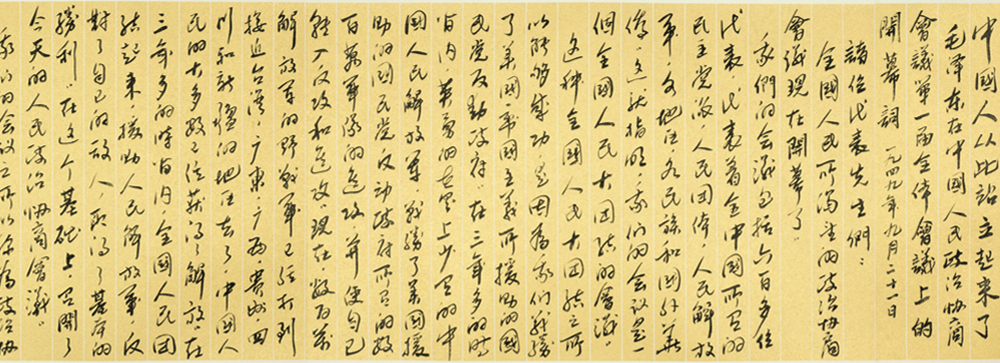 中國人从此站立起来了
毛泽东在中國人民政治协商
會議第一届全体會議上的
開幕詞 一九四九年九月二十一日
諸位代表先生們：
全國人民所渴望的政治协商
會議現在開幕了
我們的會議包括六百多位
代表，代表着全中國所有的
民主党派、人民团体、人民解放
軍、各地区、各民族和國外華
僑，这就指明，我们的会议是一
個全國人民大团结的會議。
这种全國人民大团结之所
以能够成功，是因為我们戰勝
了美國帝國主義所援助的國
民党反動政府。在三年多的時
間内，英勇的世界上少有的中
國人民解放軍戰勝了美國援
助的國民党反动政府所有的数
百萬軍隊的進攻，并使自己
转入反攻和進攻。現在，数百万
解放軍的野戰軍已经打到
接近台湾、广東、广西、貴州、四
川和新疆的地区去了，中國人
民的大多数已经获得了解放。在
三年多的時间内，全國人民团
结起来，援助人民解放军，反
對了自己的敌人，取得了基本的
勝利。在这个基础上，召開了
今天的人民政治协商會議。
我们的会议之所以称为政治协